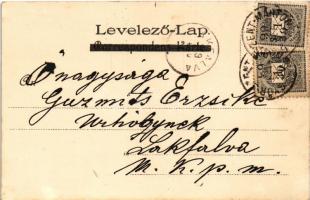 Levelező-Lap
Correspondenz-Karte
Őnagysága
Guzmits Erzsike
Úrhölgynek
Lakfalva
M. K. p. m.